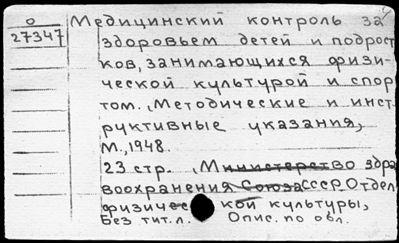 О Медицинский контроль за
27347 здоровьем детей и подрост
ков, занимающихся физи-
ческой культурой и спор
том. Методические и инст
руктивные указания,
М., 1948.
23 стр. Министерство здра
воохранения Союза ССР. Отдел
физической культуры,
Без тит. л. Опис. по обл.